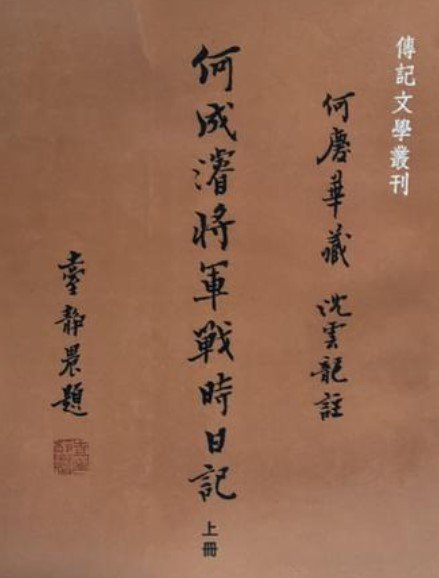 傳記文學叢刊
何慶華藏 沈雲龍註
何成濬將軍戰時日記
上冊
臺靜農題